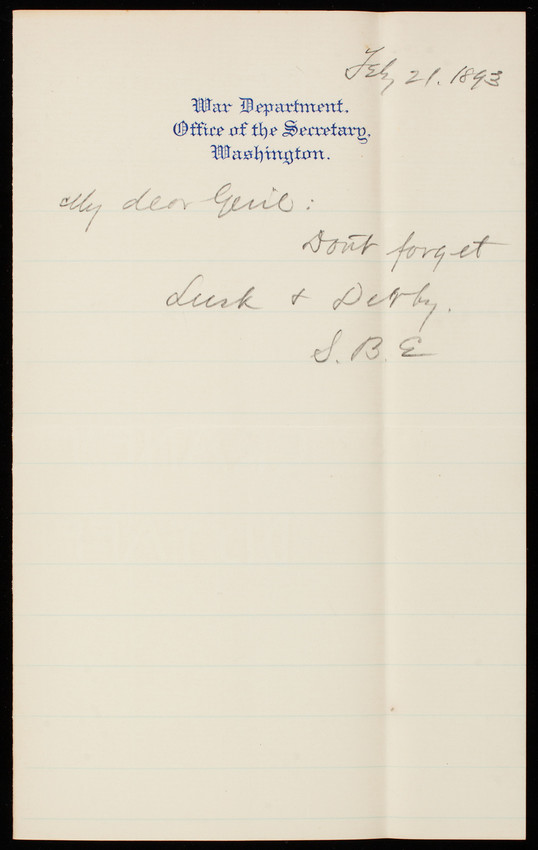 Feby 21. 1893
War Department.
Office of the Secretary.
Washington.
My dear Genl:
Dont forget
Lusk & Derby.
S. B. E